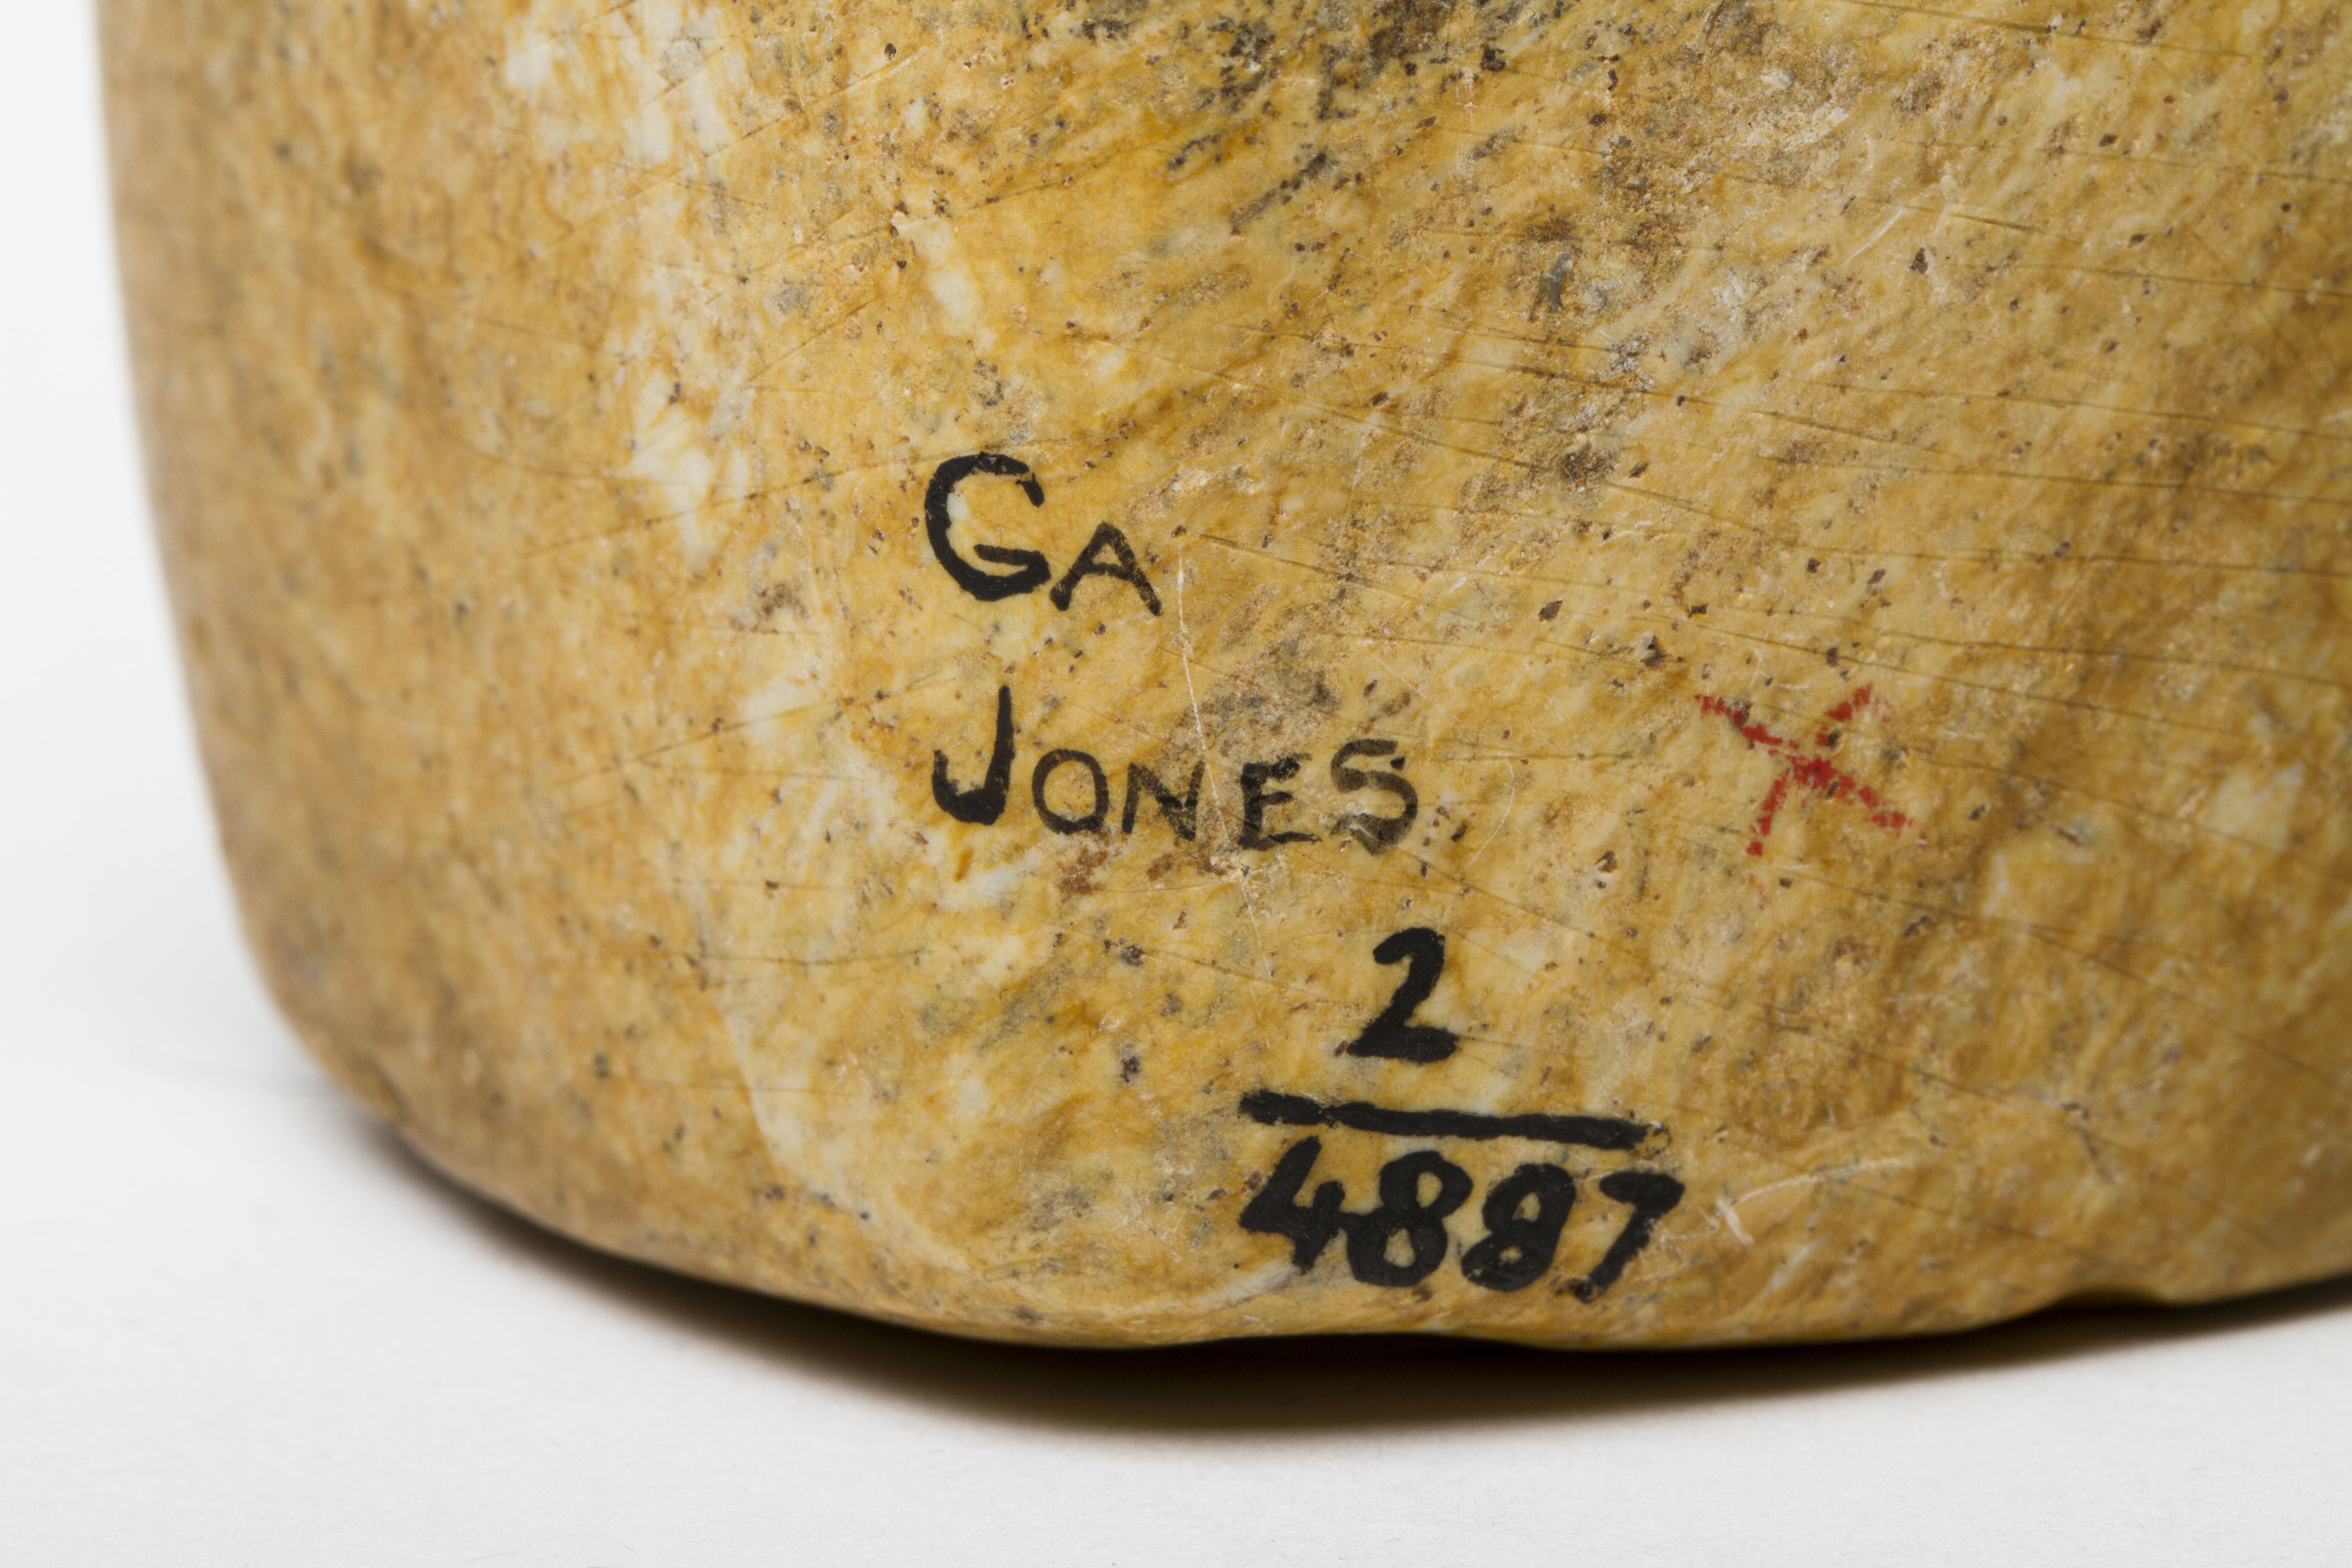 GA
JONES
2
4887